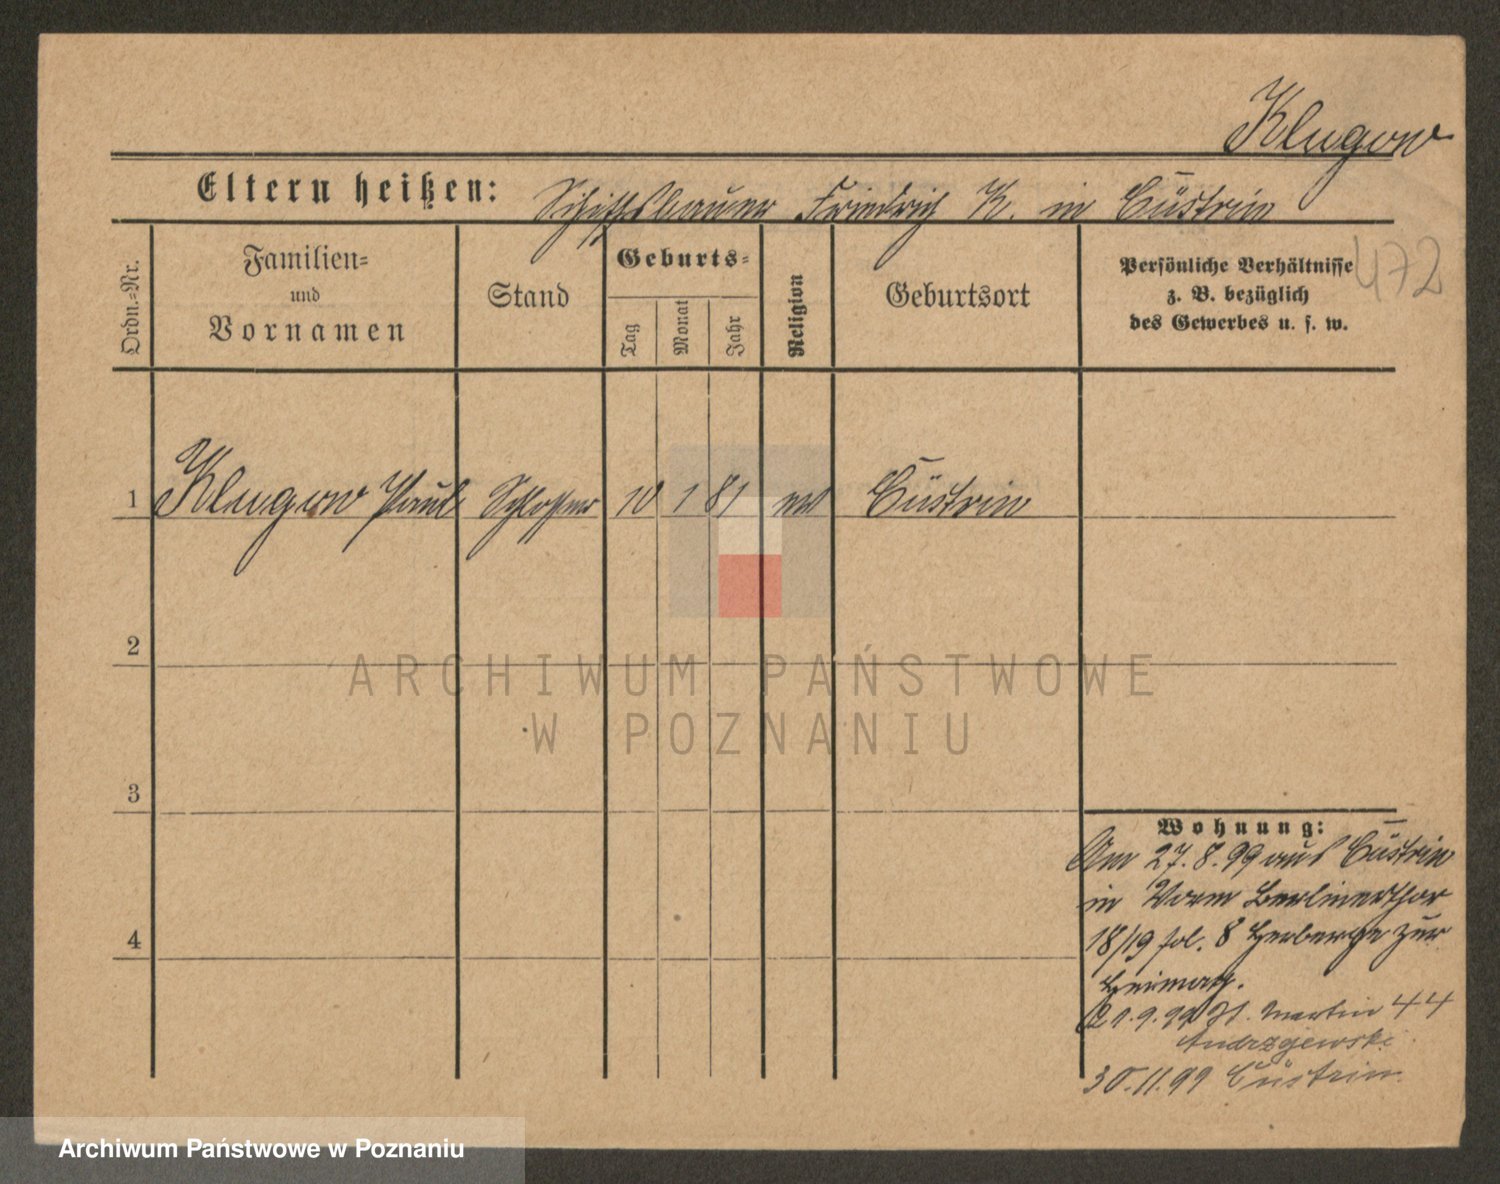 Klugow
Eltern heißen: Schiffsbauer Friedrich K. in Cüstrin
472
Ordn.-Nr.
Familien-
und
Vornamen
Stand
Geburts-
Tag
Monat
Jahr
Religion
Geburtsort
Persönliche Verhältnisse
z. B. bezüglich
des Gewerbes u. s. w.
1 Klugow Paul Schlosser 10 1 81 ev Cüstrin
2
3
4
Wohnung:
Am 27.8.99 aus Cüstrin
in Vorm Berlinerthor
18/19 fol. 8 Herberge zur
Heimath.
21.9.99 St. Martin 44
Andrzejewski
30.11.99 Cüstrin
ARCHIWUM PAŃSTWOWE
W POZNANIU
Archiwum Państwowe w Poznaniu